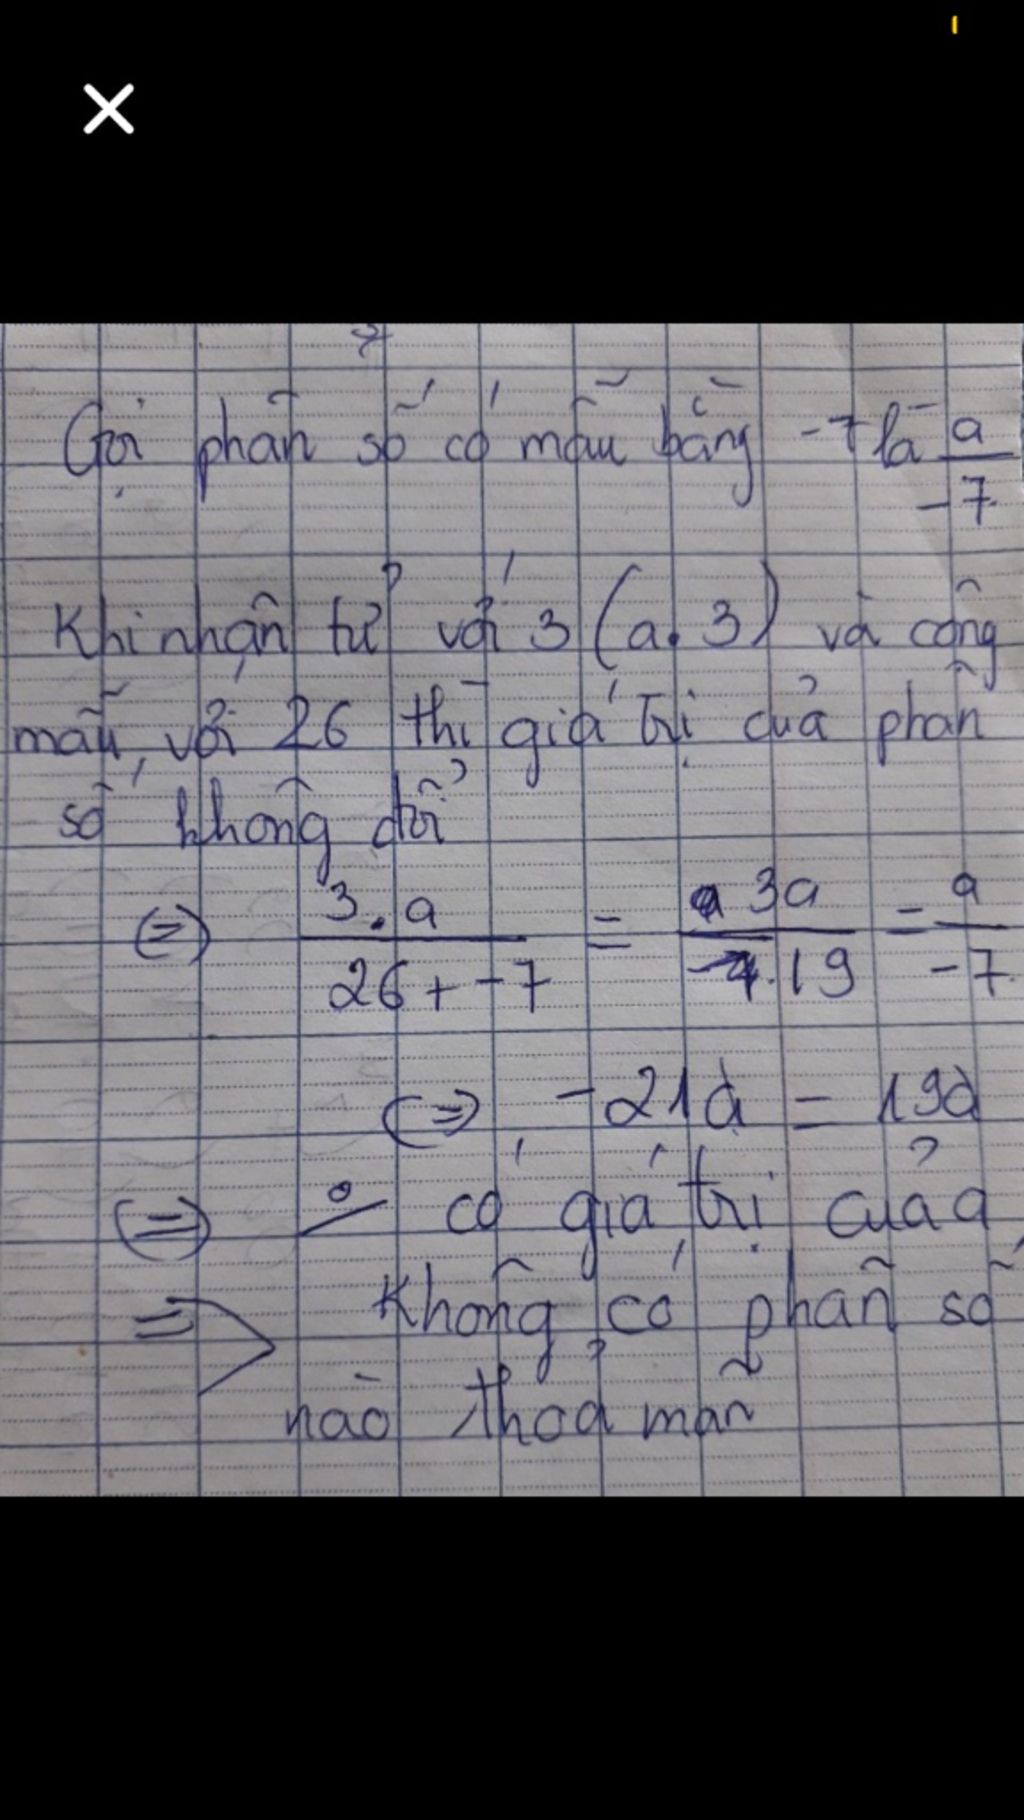 Gọi phân số có mẫu bằng -7 là a/-7
Khi nhân tử với 3 (a. 3) và cộng
mẫu với 26 thì giá trị của phân
số không đổi
(=) 3.a/26+-7 = 3a/19 = a/-7
(=) -21a = 19a
(=) có giá trị của a
=> Không có phân số
nào thoả mãn